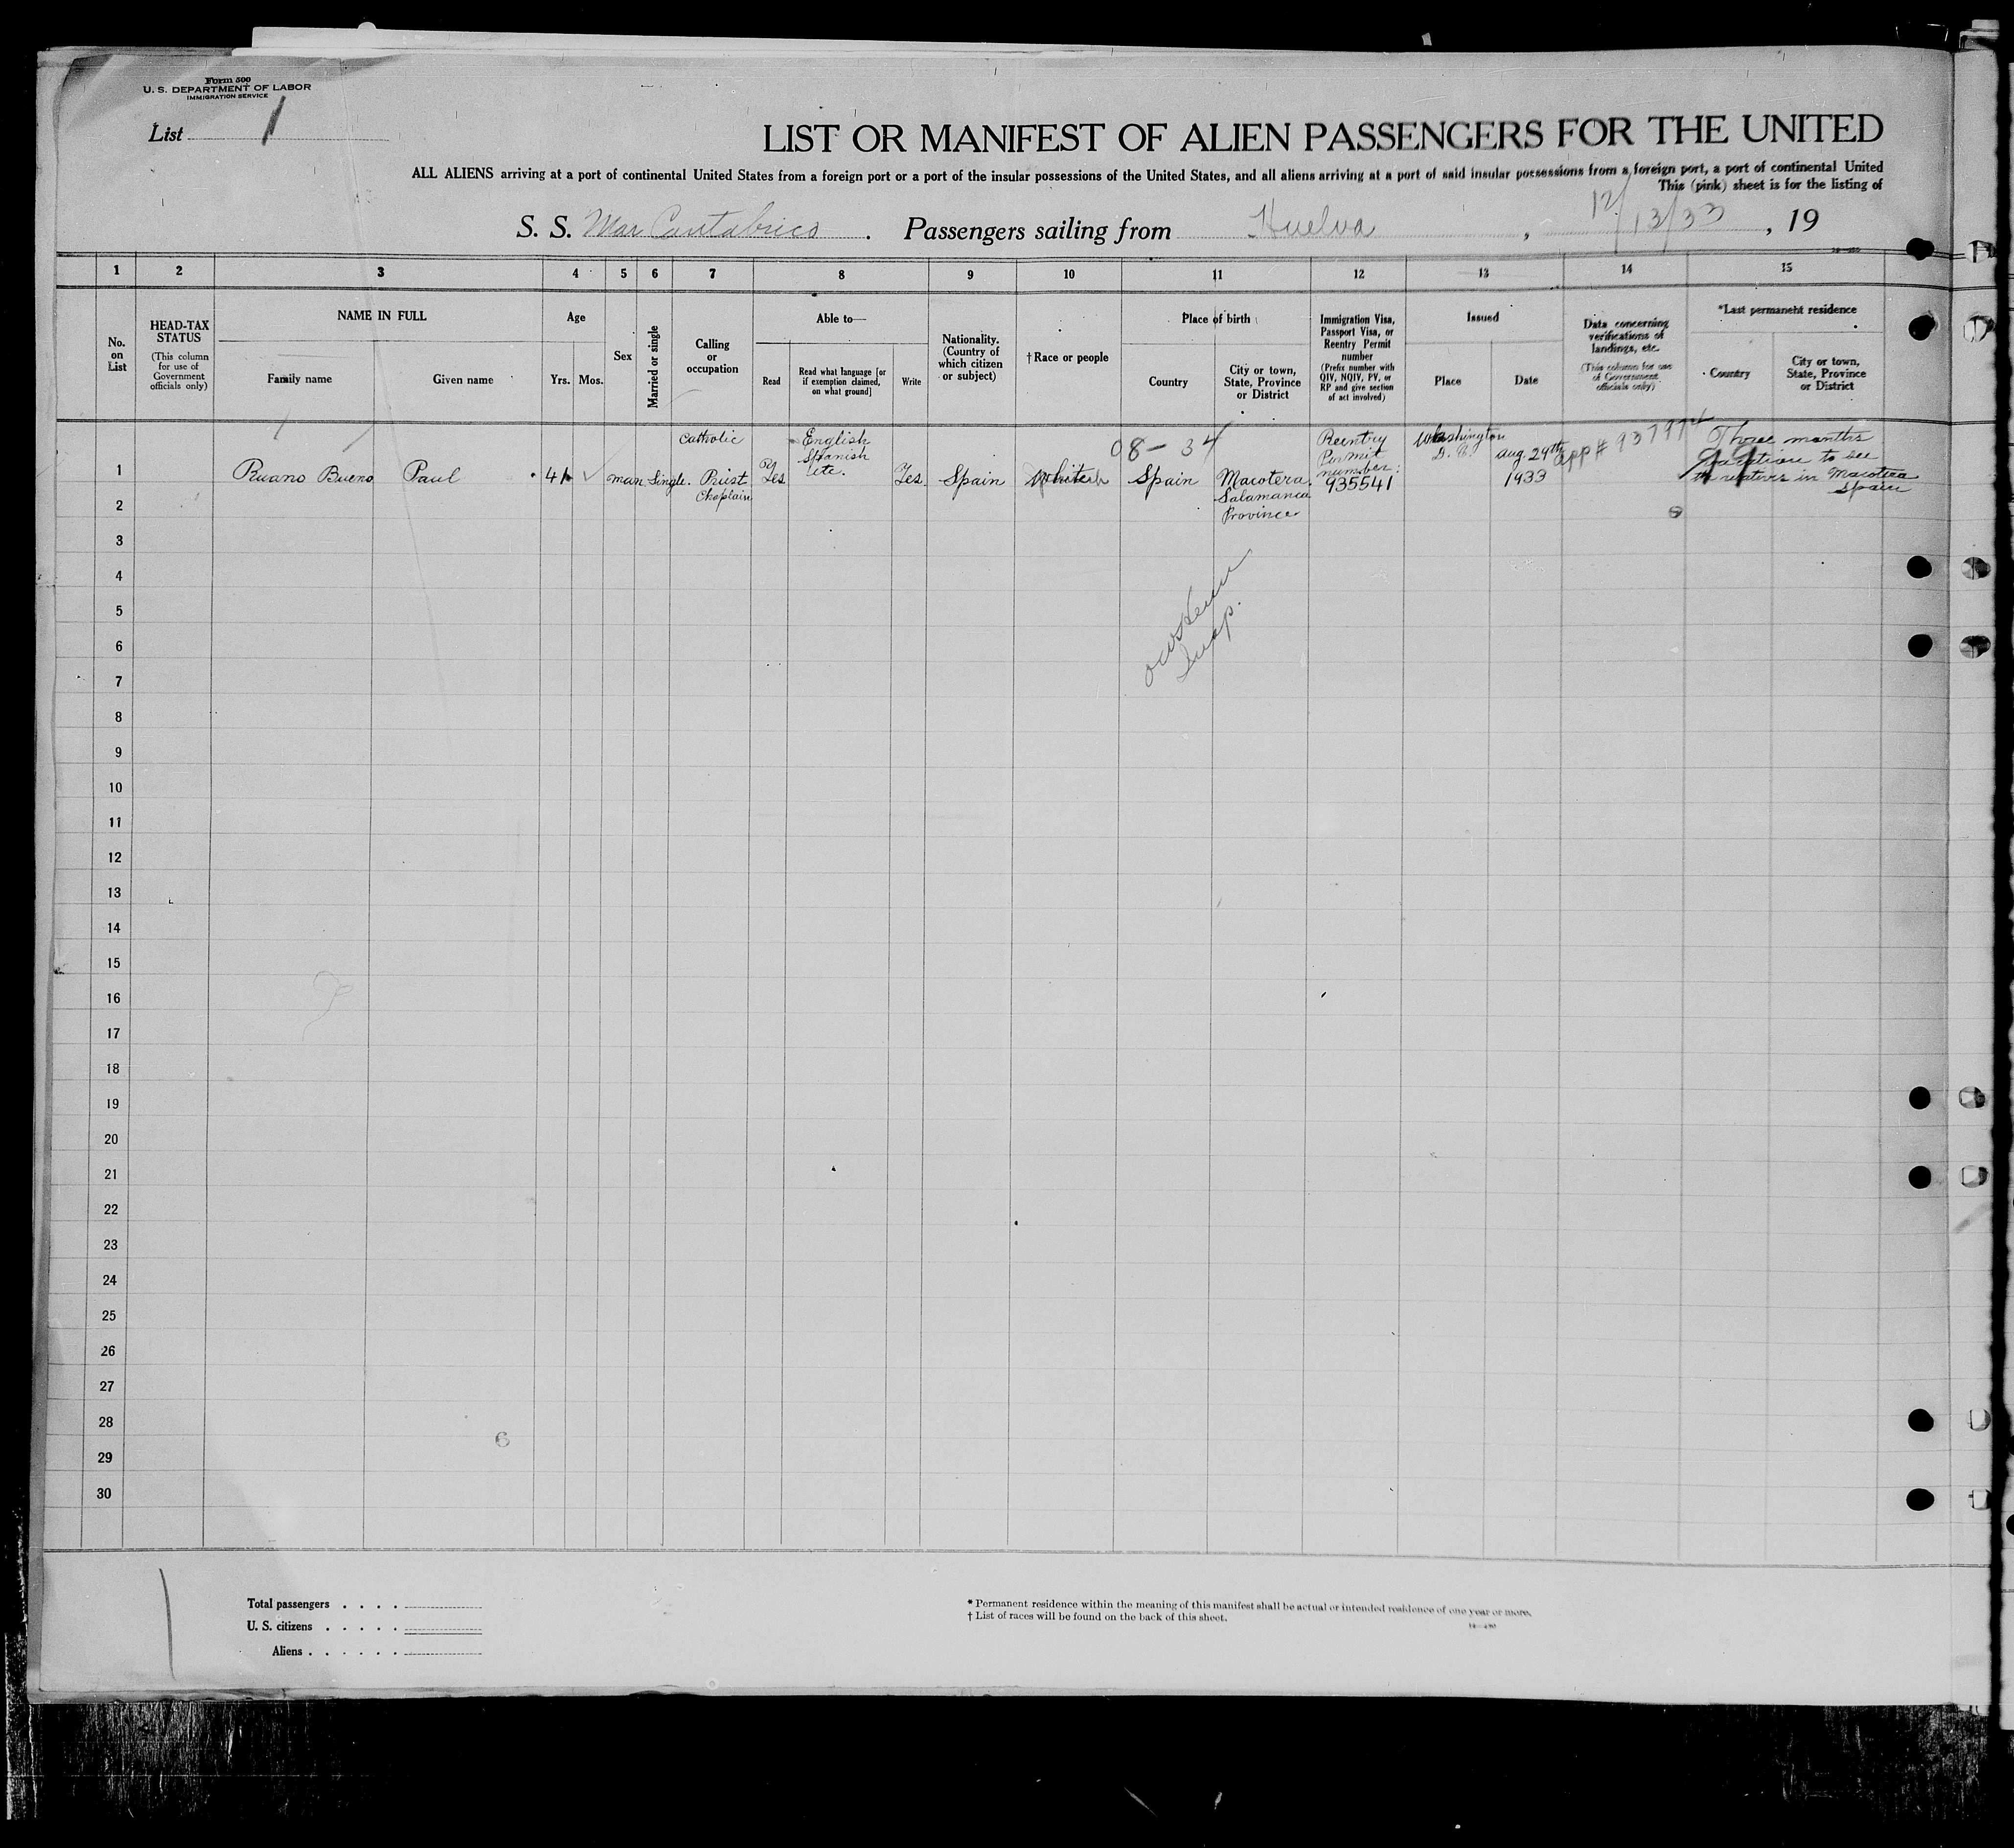 Form 500
U. S. DEPARTMENT OF LABOR
IMMIGRATION SERVICE
List 1
LIST OR MANIFEST OF ALIEN PASSENGERS FOR THE UNITED
ALL ALIENS arriving at a port of continental United States from a foreign port or a port of the insular possessions of the United States, and all aliens arriving at a port of said insular possessions from a foreign port, a port of continental United
This (pink) sheet is for the listing of
S. S. Mar Cantabrico . Passengers sailing from Huelva , 12/13/33 , 19
1 2 3 4 5 6 7 8 9 10 11 12 13 14 15
No. on List
HEAD-TAX STATUS
(This column for use of Government officials only)
NAME IN FULL
Family name
Given name
Age
Yrs. Mos.
Sex
Married or single
Calling or occupation
Able to—
Read
Read what language [or if exemption claimed, on what ground]
Write
Nationality. (Country of which citizen or subject)
†Race or people
Place of birth
Country
City or town, State, Province or District
Immigration Visa, Passport Visa, or Reentry Permit number
(Prefix number with QIV, NQIV, PV, or RP and give section of act involved)
Issued
Place
Date
Data concerning verifications of landings, etc.
(This column for use of Government officials only)
*Last permanent residence
Country
City or town, State, Province or District
1
Ruano Bueno
Paul
41
man
Single.
Catholic
Priest
Chaplain
Yes
English
Spanish
etc.
Yes.
Spain
White
08-34
Spain
Macotera
Salamanca
Province
Reentry
Permit
number:
935541
Washington
D. C.
Aug. 29th
1933
app #
Three months
vacation to see
relatives in Macotera
Spain
2
3
4
5
6
7
8
9
10
11
12
13
14
15
16
17
18
19
20
21
22
23
24
25
26
27
28
29
30
6
Total passengers . . . .
U. S. citizens . . . . .
Aliens . . . . . .
* Permanent residence within the meaning of this manifest shall be actual or intended residence of one year or more.
† List of races will be found on the back of this sheet.